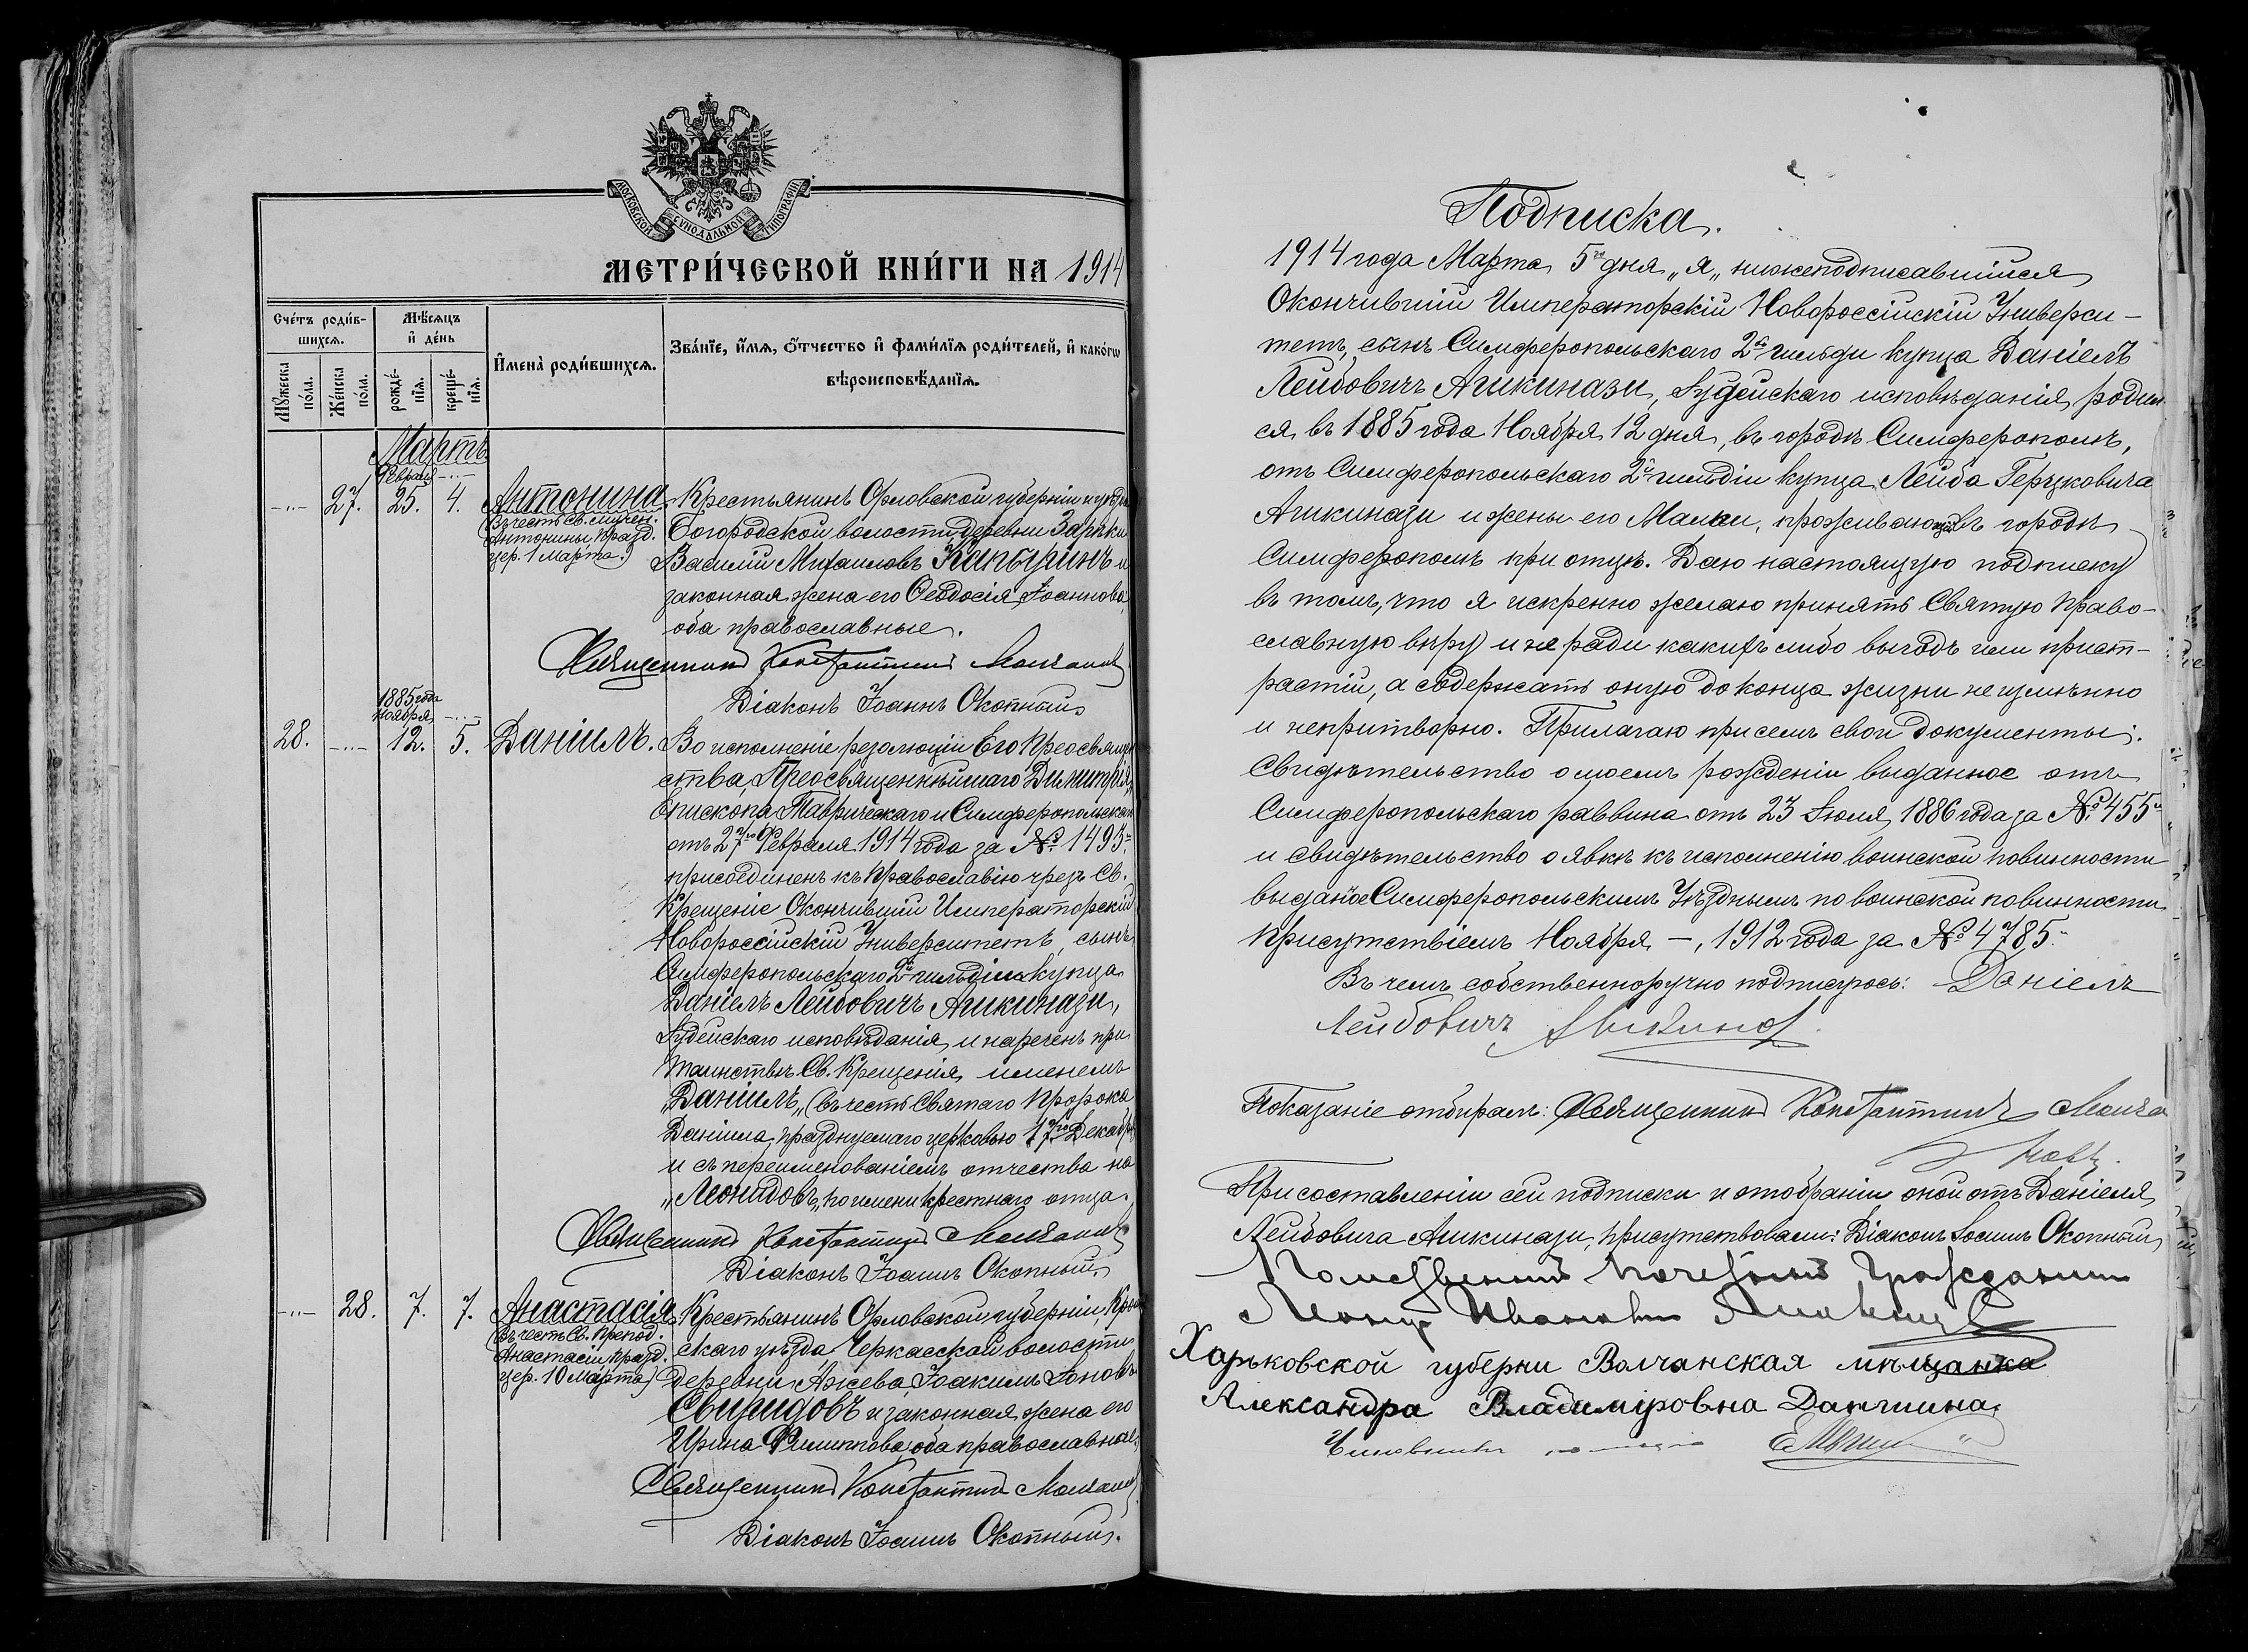 МОСКОВСКОЙ СѴНОДАЛЬНОЙ ТИПОГРАФІИ
МЕТРИ́ЧЕСКОЙ КНИ́ГИ НА 1914
Сче́тъ роди́в-
шихсѧ.
Мѣ́сѧцъ
и҆ де́нь
И҆мена̀ роди́вшихсѧ.
Зва́нїе, и҆́мѧ, ѻ҆́тчество и҆ фами́лїѧ роди́телей, и҆ како́гѡ
вѣроисповѣ́данїѧ.
Мꙋ́жеска
по́ла.
Же́нска
по́ла.
рожде́-
нїѧ.
креще́-
нїѧ.
Мартъ
Февраля -..-
-..- 27. 25. 4. Антонина Крестьянинъ Орловской губерніи и уѣзда
(Въ честь Св. мучен. Богородской волости деревни Зарѣки
Антонины празд.
цер. 1 Марта.) Василій Михаиловъ Капыринъ и
законная жена его Ѳеодосія Іоаннова,
оба православные.
Священникъ Константинъ Молчановъ
Діаконъ Іоаннъ Окопный
1885 года
Ноября -..-
28. -..- 12. 5. Даніилъ. Во исполненіе резолюціи Его Преосвящен
ства, Преосвященнѣйшаго Димитрія,
Епископа Таврическаго и Симферопольскаго
отъ 27го Февраля 1914 года за № 1493.
присоединенъ къ Православію чрезъ Св.
Крещеніе Окончившій Императорскій
Новороссійскій Университетъ, сынъ
Симферопольскаго 2й гильдіи купца
Даніелъ Лейбовичъ Ашкинази,
Іудейскаго исповѣданія, и нареченъ при
таинствѣ Св. Крещенія, именемъ
„Даніилъ„ (въ честь Святаго Пророка
Даніила, празднуемаго церковью 17го Декабря
и съ переименованіемъ отчества на
„Леонидовъ„ по имени крестнаго отца.
Священникъ Константинъ Молчановъ
Діаконъ Іоаннъ Окопный.
-..- 28. 7. 7. Анастасія Крестьянинъ Орловской губерніи, Кром
(Въ честь Св. Препод. скаго уѣзда Черкасской волости
Анастасіи празд.
цер. 10 Марта) деревни Ажева Іоакимъ Іоновъ
Свиридовъ и законная жена его
Ирина Филиппова, оба православные.
Священникъ Константинъ Молчановъ
Діаконъ Іоаннъ Окопный.
Подписка.
1914 года Марта 5го дня „я„ нижеподписавшійся
Окончившій Императорскій Новороссійскій Универси-
тетъ, сынъ Симферопольскаго 2й гильди купца Даніелъ
Лейбовичъ Ашкинази, Іудейскаго исповѣданія, родил
ся въ 1885 года Ноября 12 дня, въ городѣ Симферополѣ,
отъ Симферопольскаго 2й гильдіи купца Лейба Герцковича
Ашкинази и жены его Малки, проживающій въ городѣ
Симферополѣ при отцѣ. Даю настоящую подписку
въ томъ, что я искренно желаю принять Святую Право-
славную вѣру и не ради какихъ либо выгодъ или прист-
растій, а содержать оную до конца жизни неизмѣнно
и непритворно. Прилагаю при семъ свои документы:
Свидѣтельство о моемъ рожденіи выданное отъ
Симферопольскаго раввина отъ 23 Іюля, 1886 года за № 455
и свидѣтельство о явкѣ къ исполненію воинской повинности
выданое Симферопольскимъ Уѣзднымъ по воинской повинности
Присутствіемъ Ноября –, 1912 года за № 4785.
Въ чемъ собственноручно подписуюсь: Даніелъ
Лейбовичъ Ашкинази.
Показаніе отбиралъ: Священникъ Константинъ Молча
новъ.
При составленіи сей подписки и отобраніи оной отъ Даніеля
Лейбовича Ашкинази, присутствовали: Діаконъ Іоаннъ Окопный
Потомственный Почетный Гражданинъ
Леонидъ Ивановичъ
Харьковской губерни Волчанская мѣщанка
Александра Владиміровна Данчина.
Чиновникъ